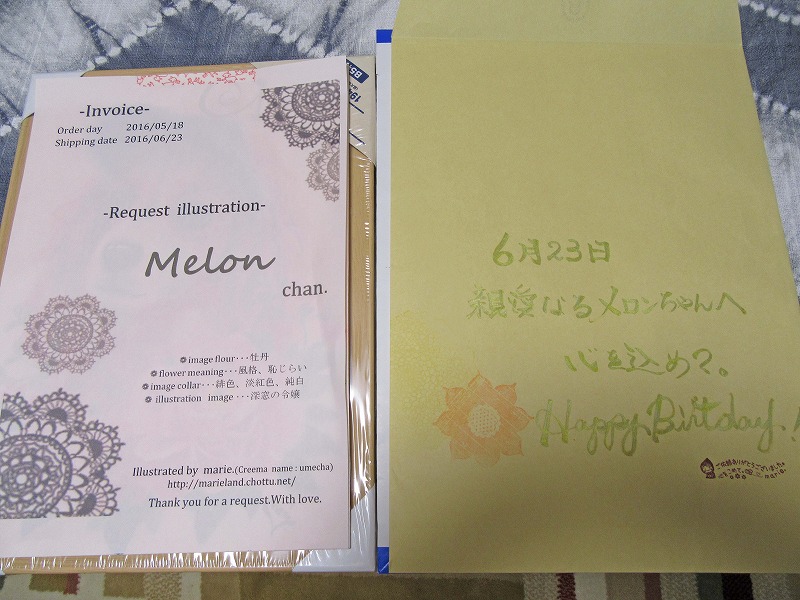 -Invoice-
Order day 2016/05/18
Shipping date 2016/06/23
-Request illustration-
Melon
chan.
image flour･･･牡丹
flower meaning･･･風格、恥じらい
image collar･･･緋色、淡紅色、純白
illustration image･･･深窓の令嬢
Illustrated by marie.(Creema name : umecha)
http://marieland.chottu.net/
Thank you for a request.With love.
B5
6月23日
親愛なるメロンちゃんへ
心を込めて。
Happy Birtday!
ご依頼ありがとうございました
marie.